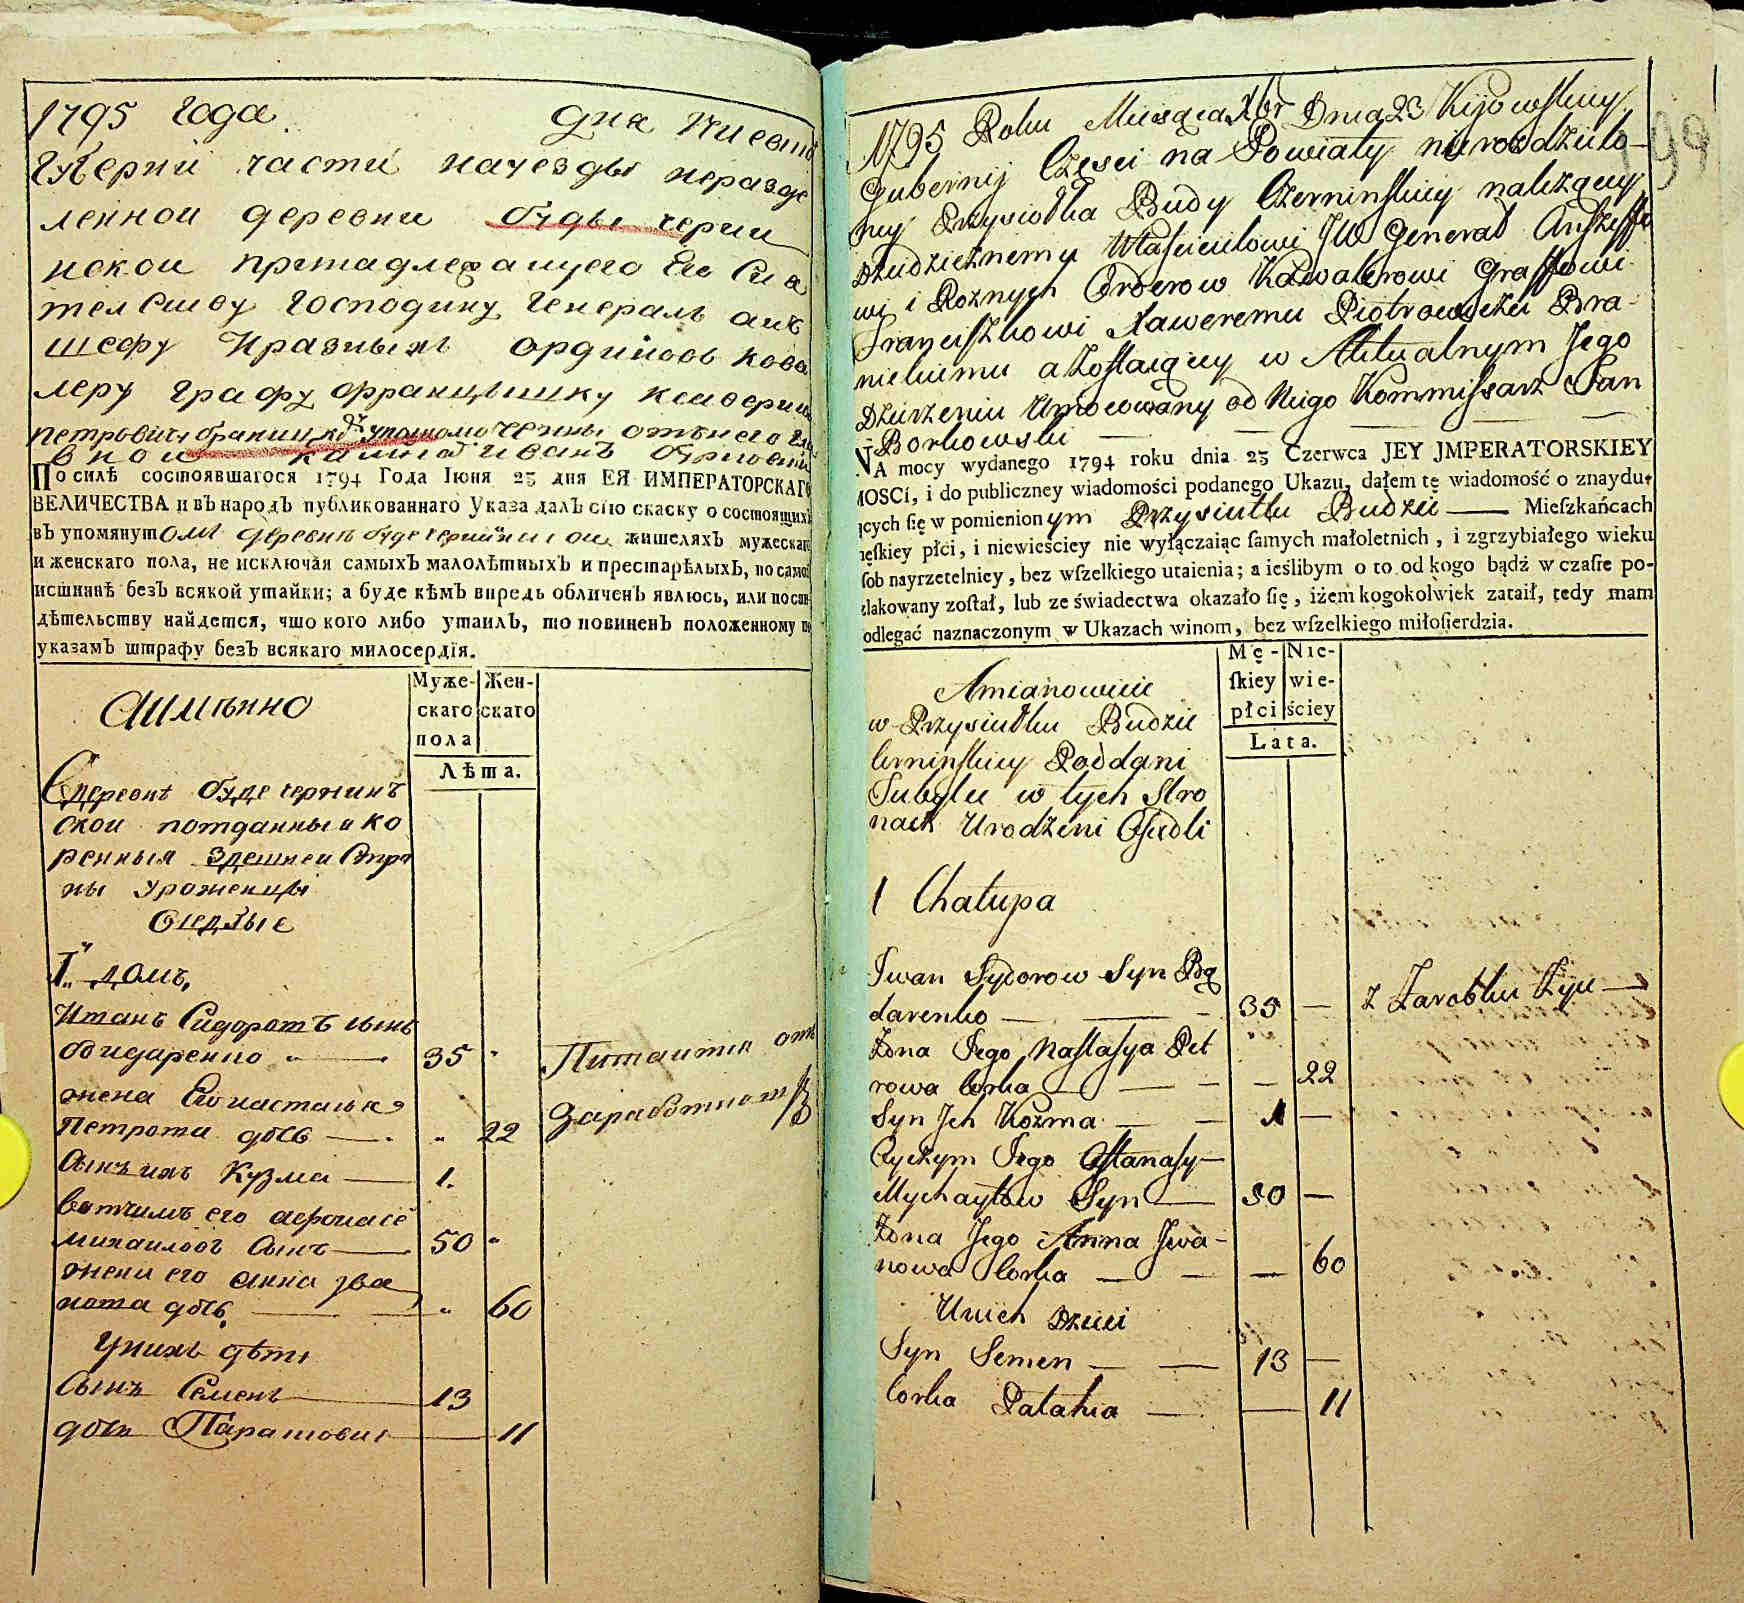 1795 года. дня Киевской
Губерніи части науезды неразде
ленной деревни буды черни
нской принадлежащего Его Сия
тельству Господину Генералъ анъ
шефу И разныхъ ординовъ кова
леру Графу Францышку Ксаверию
петровичу браницкому упалномоченны отънего гла
вной Иванъ
По силѣ состоявшагося 1794 Года Іюня 23 дня ЕЯ ИМПЕРАТОРСКАГО
ВЕЛИЧЕСТВА и въ народъ публикованнаго Указа далъ сію скаску о состоящихъ
въ упомянутой деревнѣ буде чернинской жителяхъ мужескаго
и женскаго пола, не исключая самыхъ малолѣтныхъ и престарѣлыхъ, по самой
истиннѣ безъ всякой утайки; а буде кѣмъ впредь обличенъ явлюсь, или по сви-
дѣтельству найдется, что кого либо утаилъ, то повиненъ положенному по
указамъ штрафу безъ всякаго милосердія.
Муже- Жен-
скаго скаго
пола
Лѣта.
Аимѣнно
Вдеревнѣ буде чернинъ
ской потданныя ко
ренныя здешней Стра
ны уроженцы
Оседлые
1й домъ,
Иванъ Сидоровъ сынъ
бондаренко 35 "
Питаится отъ
заработковъ
жена Его настасья
Петрова дочь " 22
Сынъ ихъ Кузма 1.
вотчимъ его афонасе
михаиловъ Сынъ 50 "
жена его анна ива
нова дочь " 60
Унихъ дѣти
Сынъ Семенъ 13
дочь 11
99
1795 Roku Miesiąca Xbr Dnia 23 Kijowskiey
Gubernij Częsci na Powiaty nierozdzielo-
ney Przysiołka Budy Czerninskiey należącey
Dziedzicznemu Włascicielowi JW Generał Anszeffo
wi i Roznych Orderow Kawalerowi Graffowi
Franciszkowi Xaweremu Piotrowiczu Bra-
nickiemu a zostaiącey w Aktualnym Jego
Dzierżeniu Umocowany od Niego Kommissarz Jan
Borkowski
NA mocy wydanego 1794 roku dnia 23 Czerwca JEY JMPERATORSKIEY
MOSCI, i do publiczney wiadomości podanego Ukazu, dałem tę wiadomość o znaydu-
ących się w pomienionym Przysiułku Budzie Mieszkańcach
męskiey płci, i niewieściey nie wyłączaiąc samych małoletnich, i zgrzybiałego wieku
osob nayrzetelniey, bez wszelkiego utaienia; a ieślibym o to od kogo bądź w czasie po-
zlakowany został, lub ze świadectwa okazało się, iżem kogokolwiek zataił, tedy mam
podlegać naznaczonym w Ukazach winom, bez wszelkiego miłosierdzia.
Mę- Nie-
skiey wie-
płci ściey
Lata.
Amianowicie
w Przysiułku Budzie
Czerninskiey Poddani
Tubylcy w tych Stro
nach Urodzeni Osiedli
1 Chałupa
Iwan Sydorow Syn Bą
darenko 35 — z Zarobku Żyie
Żona Jego Nastasya Pet
rowa Corka — 22
Syn Ich Kozma 1 —
Oyczym Jego Astanasy
Mychayłow Syn 50 —
Żona Jego Anna Jwa-
nowa Corka — 60
U nich Dzieci
Syn Semen 13 —
Corka Patahia — 11